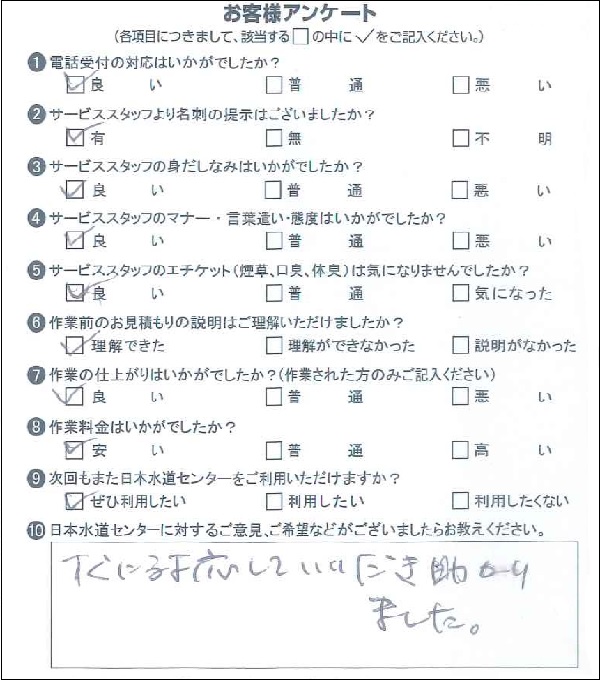 お客様アンケート
(各項目につきまして、該当する□の中に✓をご記入ください。)
❶電話受付の対応はいかがでしたか?
☑良い □普通 □悪い
❷サービススタッフより名刺の提示はございましたか?
☑有 □無 □不明
❸サービススタッフの身だしなみはいかがでしたか?
☑良い □普通 □悪い
❹サービススタッフのマナー・言葉遣い・態度はいかがでしたか?
☑良い □普通 □悪い
❺サービススタッフのエチケット(煙草、口臭、体臭)は気になりませんでしたか?
☑良い □普通 □気になった
❻作業前のお見積もりの説明はご理解いただけましたか?
☑理解できた □理解ができなかった □説明がなかった
❼作業の仕上がりはいかがでしたか?(作業された方のみご記入ください)
☑良い □普通 □悪い
❽作業料金はいかがでしたか?
☑安い □普通 □高い
❾次回もまた日本水道センターをご利用いただけますか?
☑ぜひ利用したい □利用したい □利用したくない
❿日本水道センターに対するご意見、ご希望などがございましたらお教えください。
すぐに対応していただき助かり
ました。